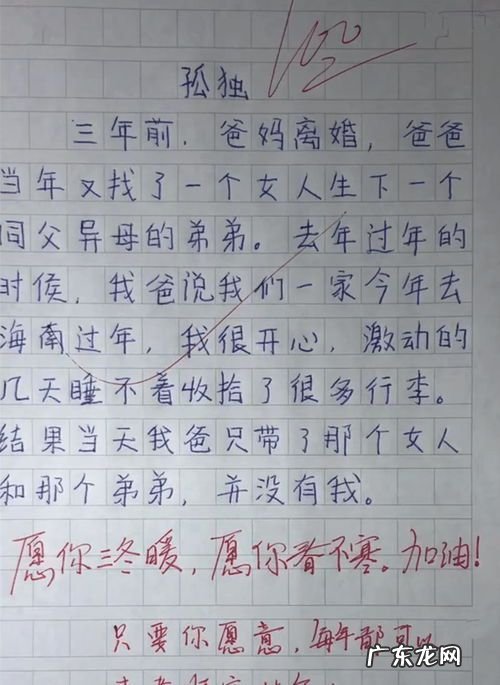 100
孤独
三年前，爸妈离婚，爸爸
当年又找了一个女人生下一个
同父异母的弟弟。去年过年的
时候，我爸说我们一家今年去
海南过年，我很开心，激动的
几天睡不着收拾了很多行李。
结果当天我爸只带了那个女人
和那个弟弟，并没有我。
愿你三冬暖，愿你春不寒。加油！
只要你愿意，每年都可以
广东龙网